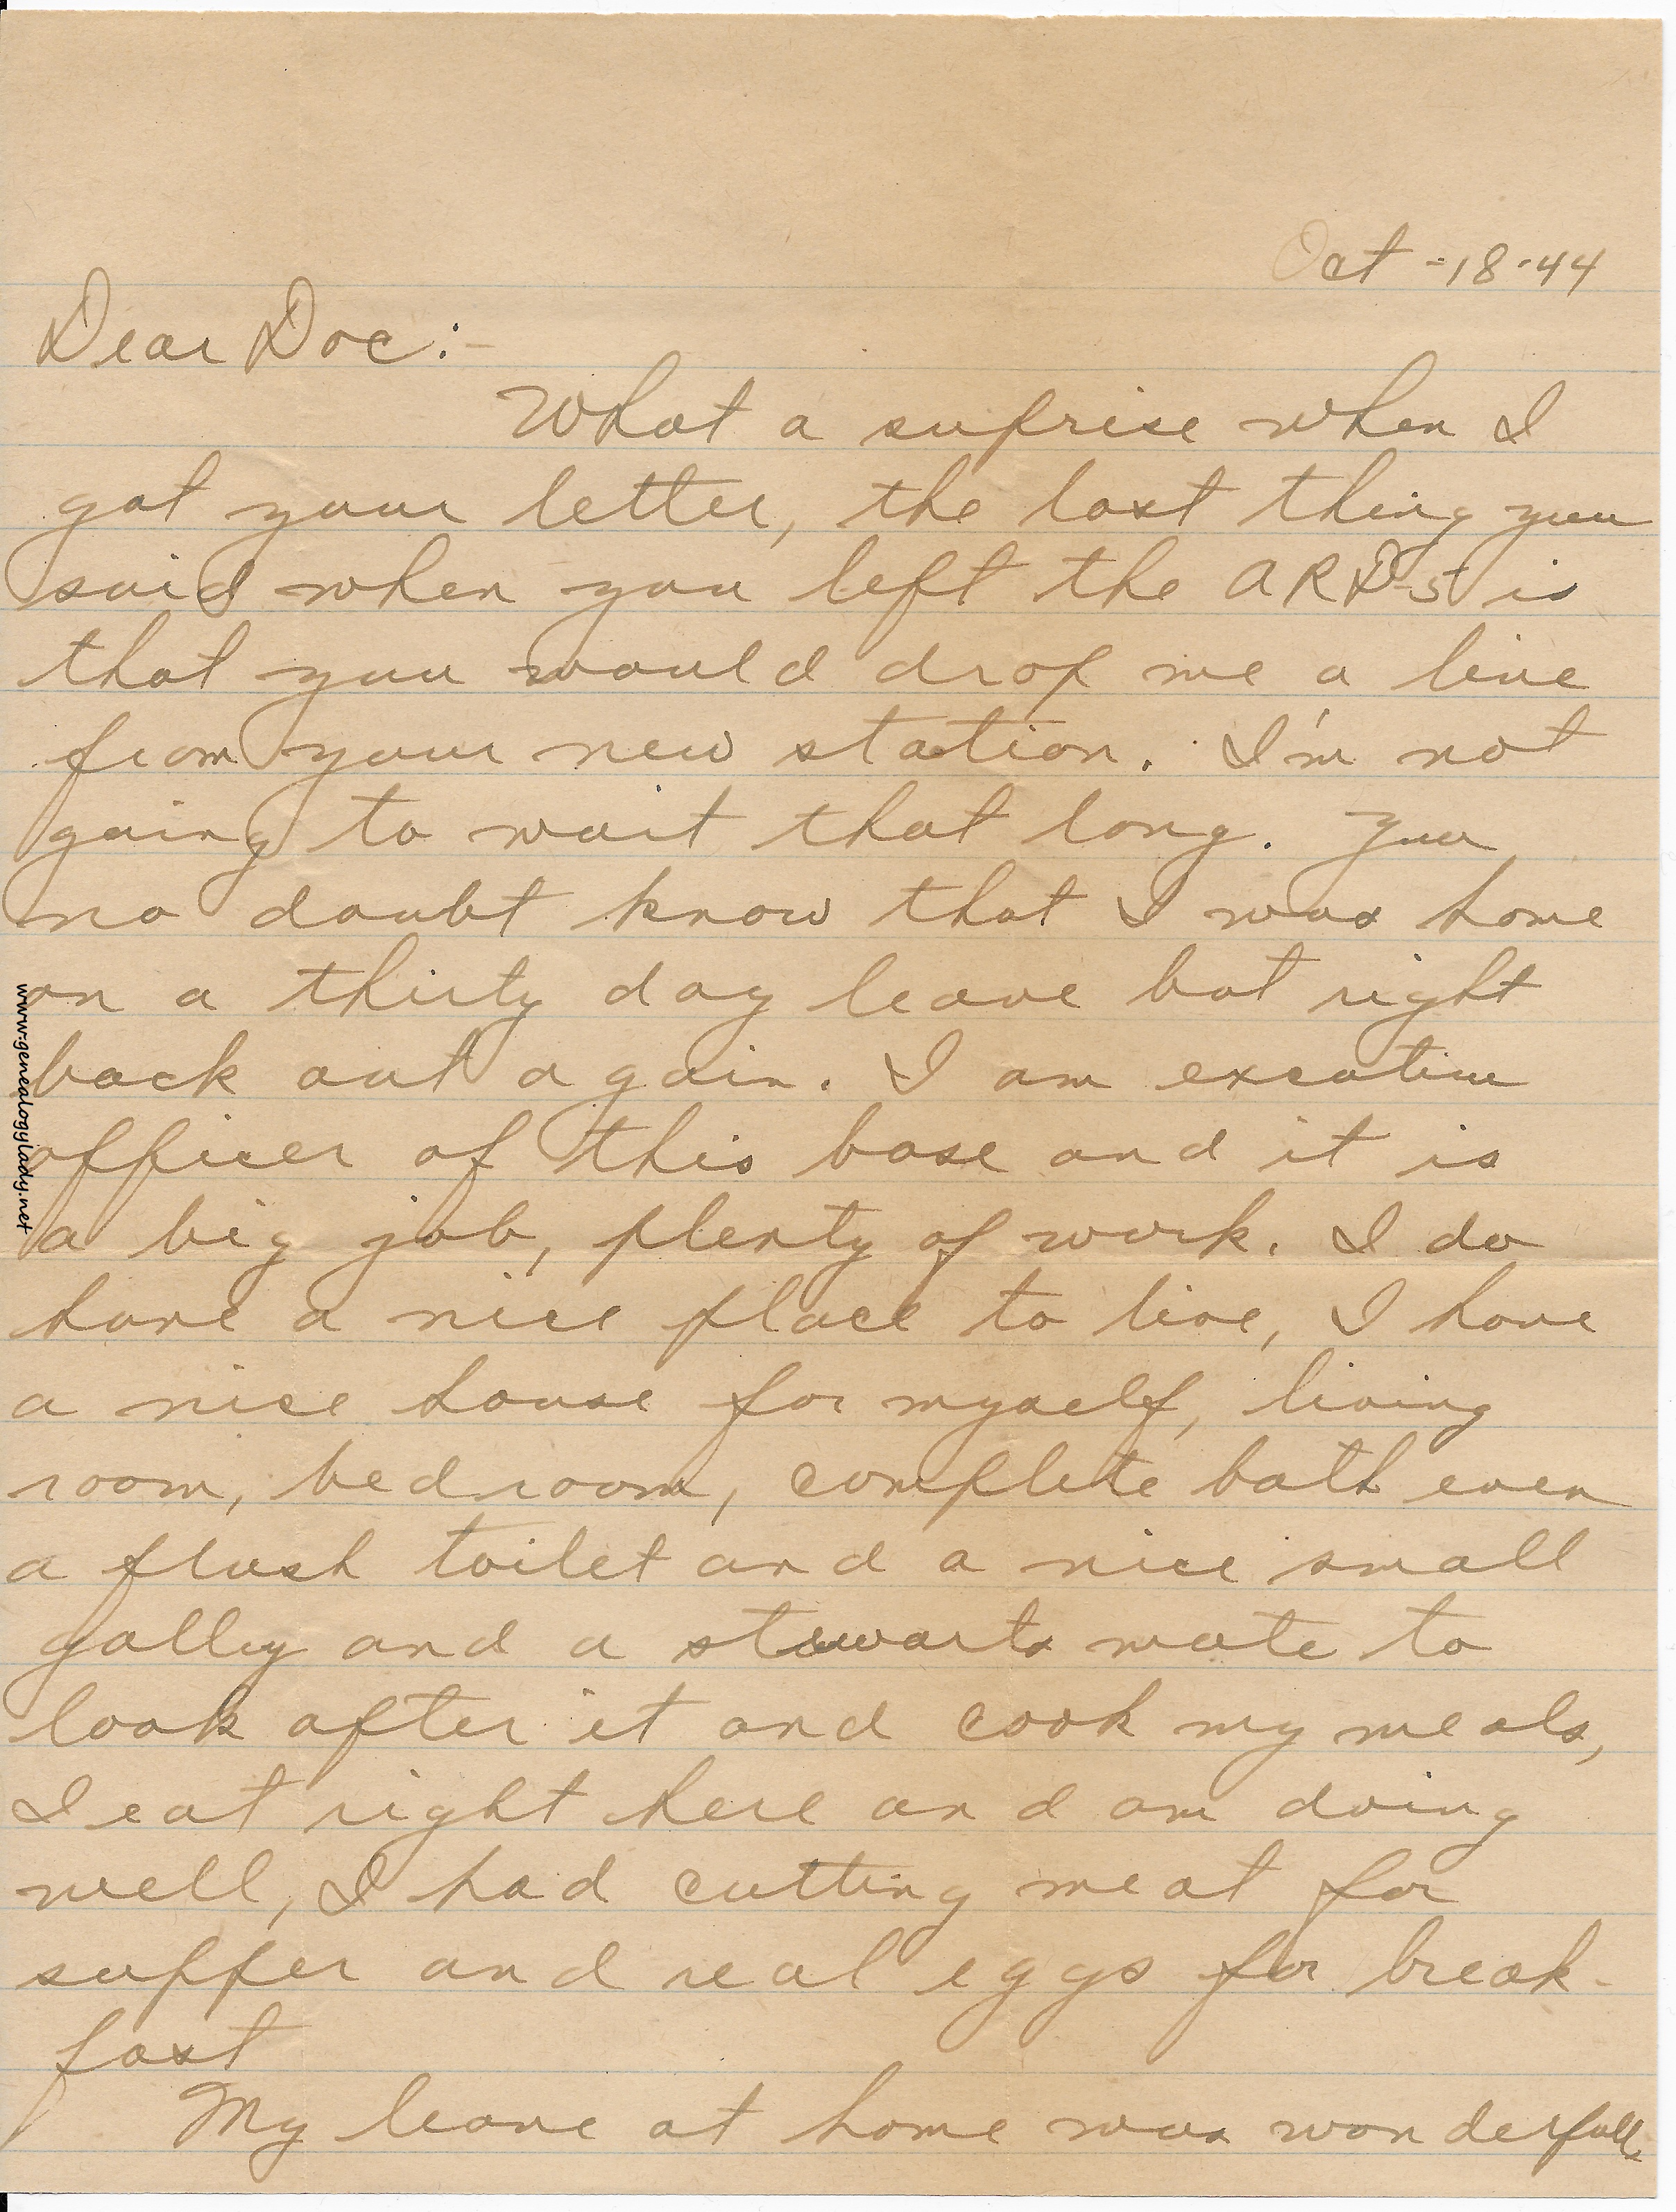 Oct-18-44
Dear Doc:-
What a suprise when I
got your letter, the last thing you
said when you left the ARD-5 is
that you would drop me a line
from your new station. I'm not
going to wait that long. You
no doubt know that I was home
on a thirty day leave but right
back out again. I am excutive
officer of this base and it is
a big job, plenty of work. I do
have a nice place to live, I have
a nice house for myself, living
room, bedroom, complete bath even
a flush toilet and a nice small
gally and a stewarts mate to
look after it and cook my meals,
I eat right here and am doing
well, I had cutting meat for
supper and real eggs for break-
fast
My leave at home was wonderfull
www.genealogylady.net